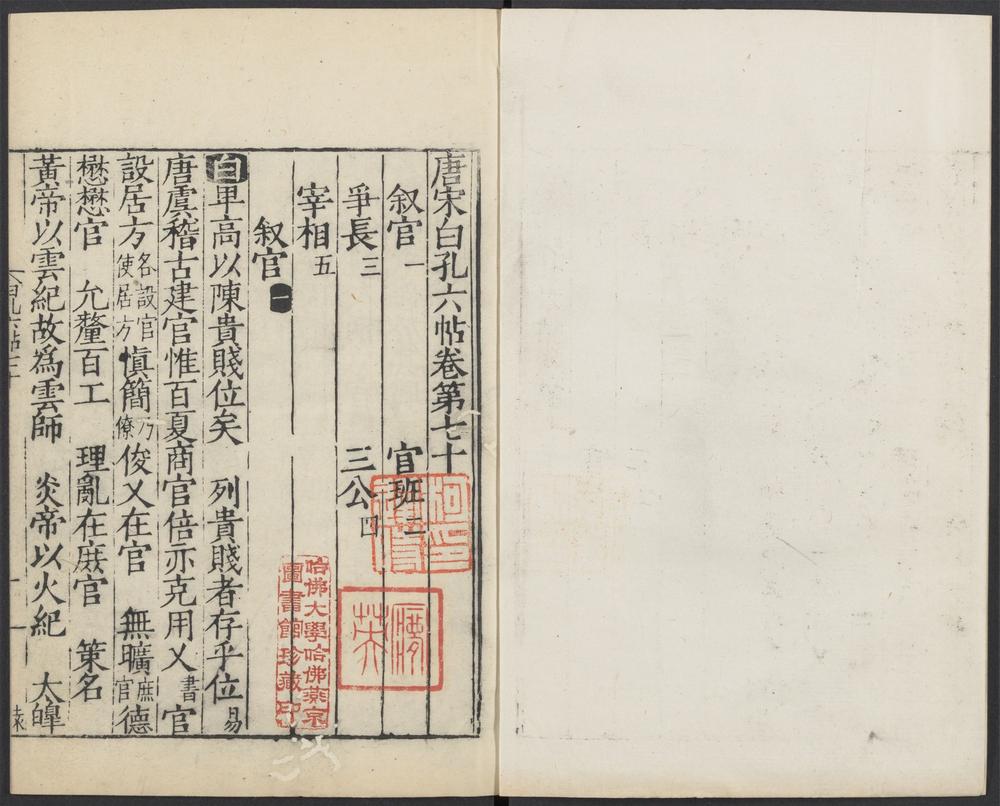 唐宋白孔六帖卷第七十
叙官一 官班二
爭長三 三公四
宰相五
叙官一
白 卑高以陳貴賤位矣 列貴賤者存乎位易
唐虞稽古建官惟百夏商官倍亦克用乂書 官
設居方各設官使居方 慎簡乃僚 俊乂在官 無曠庶官 德
懋懋官 允釐百工 理亂在庶官 策名
黃帝以雲紀故為雲師 炎帝以火紀 太皥
哈佛大學哈佛燕京
圖書館珍藏印